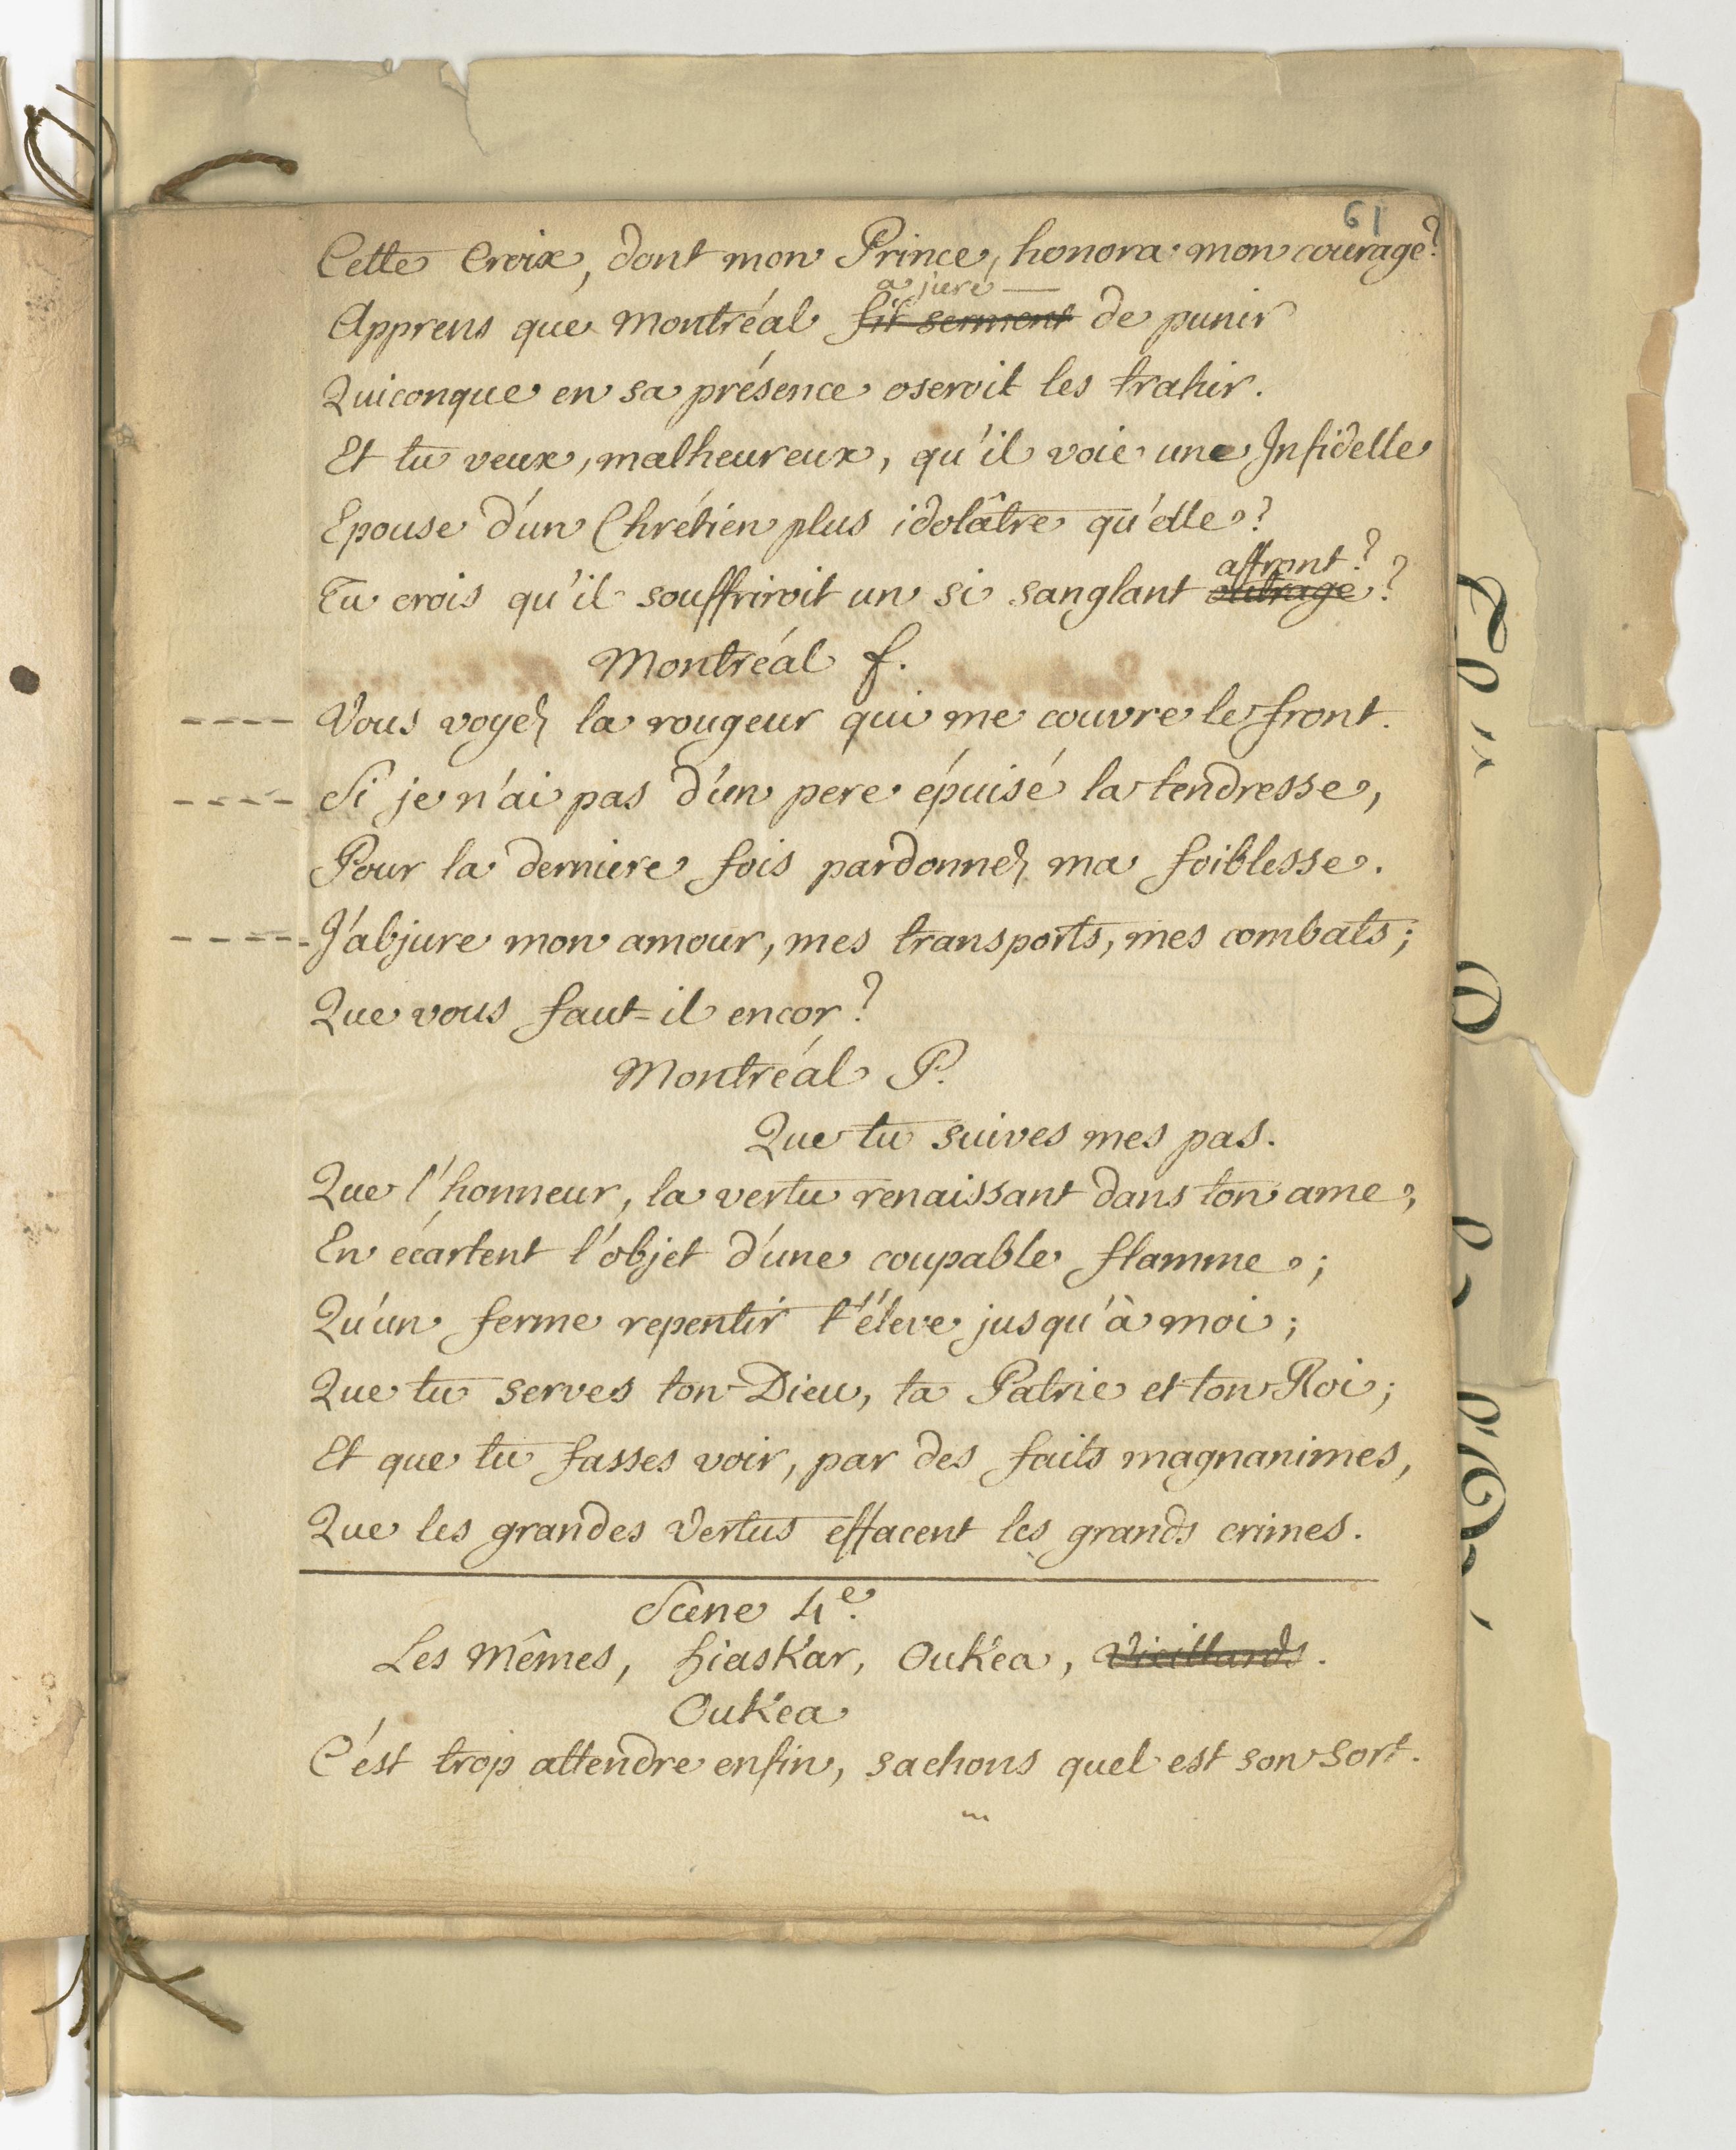 61
Cette Croix, dont mon Prince, honora mon courage?
a juré
Apprens que Montréal fit serment de punir
Quiconque en sa présence oseroit les trahir.
Et tu veux, malheureux, qu'il voie une Infidelle
Epouse d'un Chrétien plus idolâtre qu'elle?
affront?
Tu crois qu'il souffriroit un si sanglant outrage?
Montréal f.
---- Vous voyez la rougeur qui me couvre le front.
---- Si je n'ai pas d'un pere épuisé la tendresse,
Pour la derniere fois pardonnez ma foiblesse.
----- J'abjure mon amour, mes transports, mes combats;
Que vous faut=il encor?
Montréal P.
Que tu suives mes pas.
Que l'honneur, la vertu renaissant dans ton ame,
En écartent l'objet d'une coupable flamme;
Qu'un ferme repentir t'éleve jusqu'à moi;
Que tu serves ton Dieu, ta Patrie et ton Roi;
Et que tu fasses voir, par des faits magnanimes,
Que les grandes Vertus effacent les grands crimes.
Scene 4e.
Les Mêmes, hiaskar, Oukéa, Vieillards.
Oukéa
C'est trop attendre enfin, sachons quel est son sort.